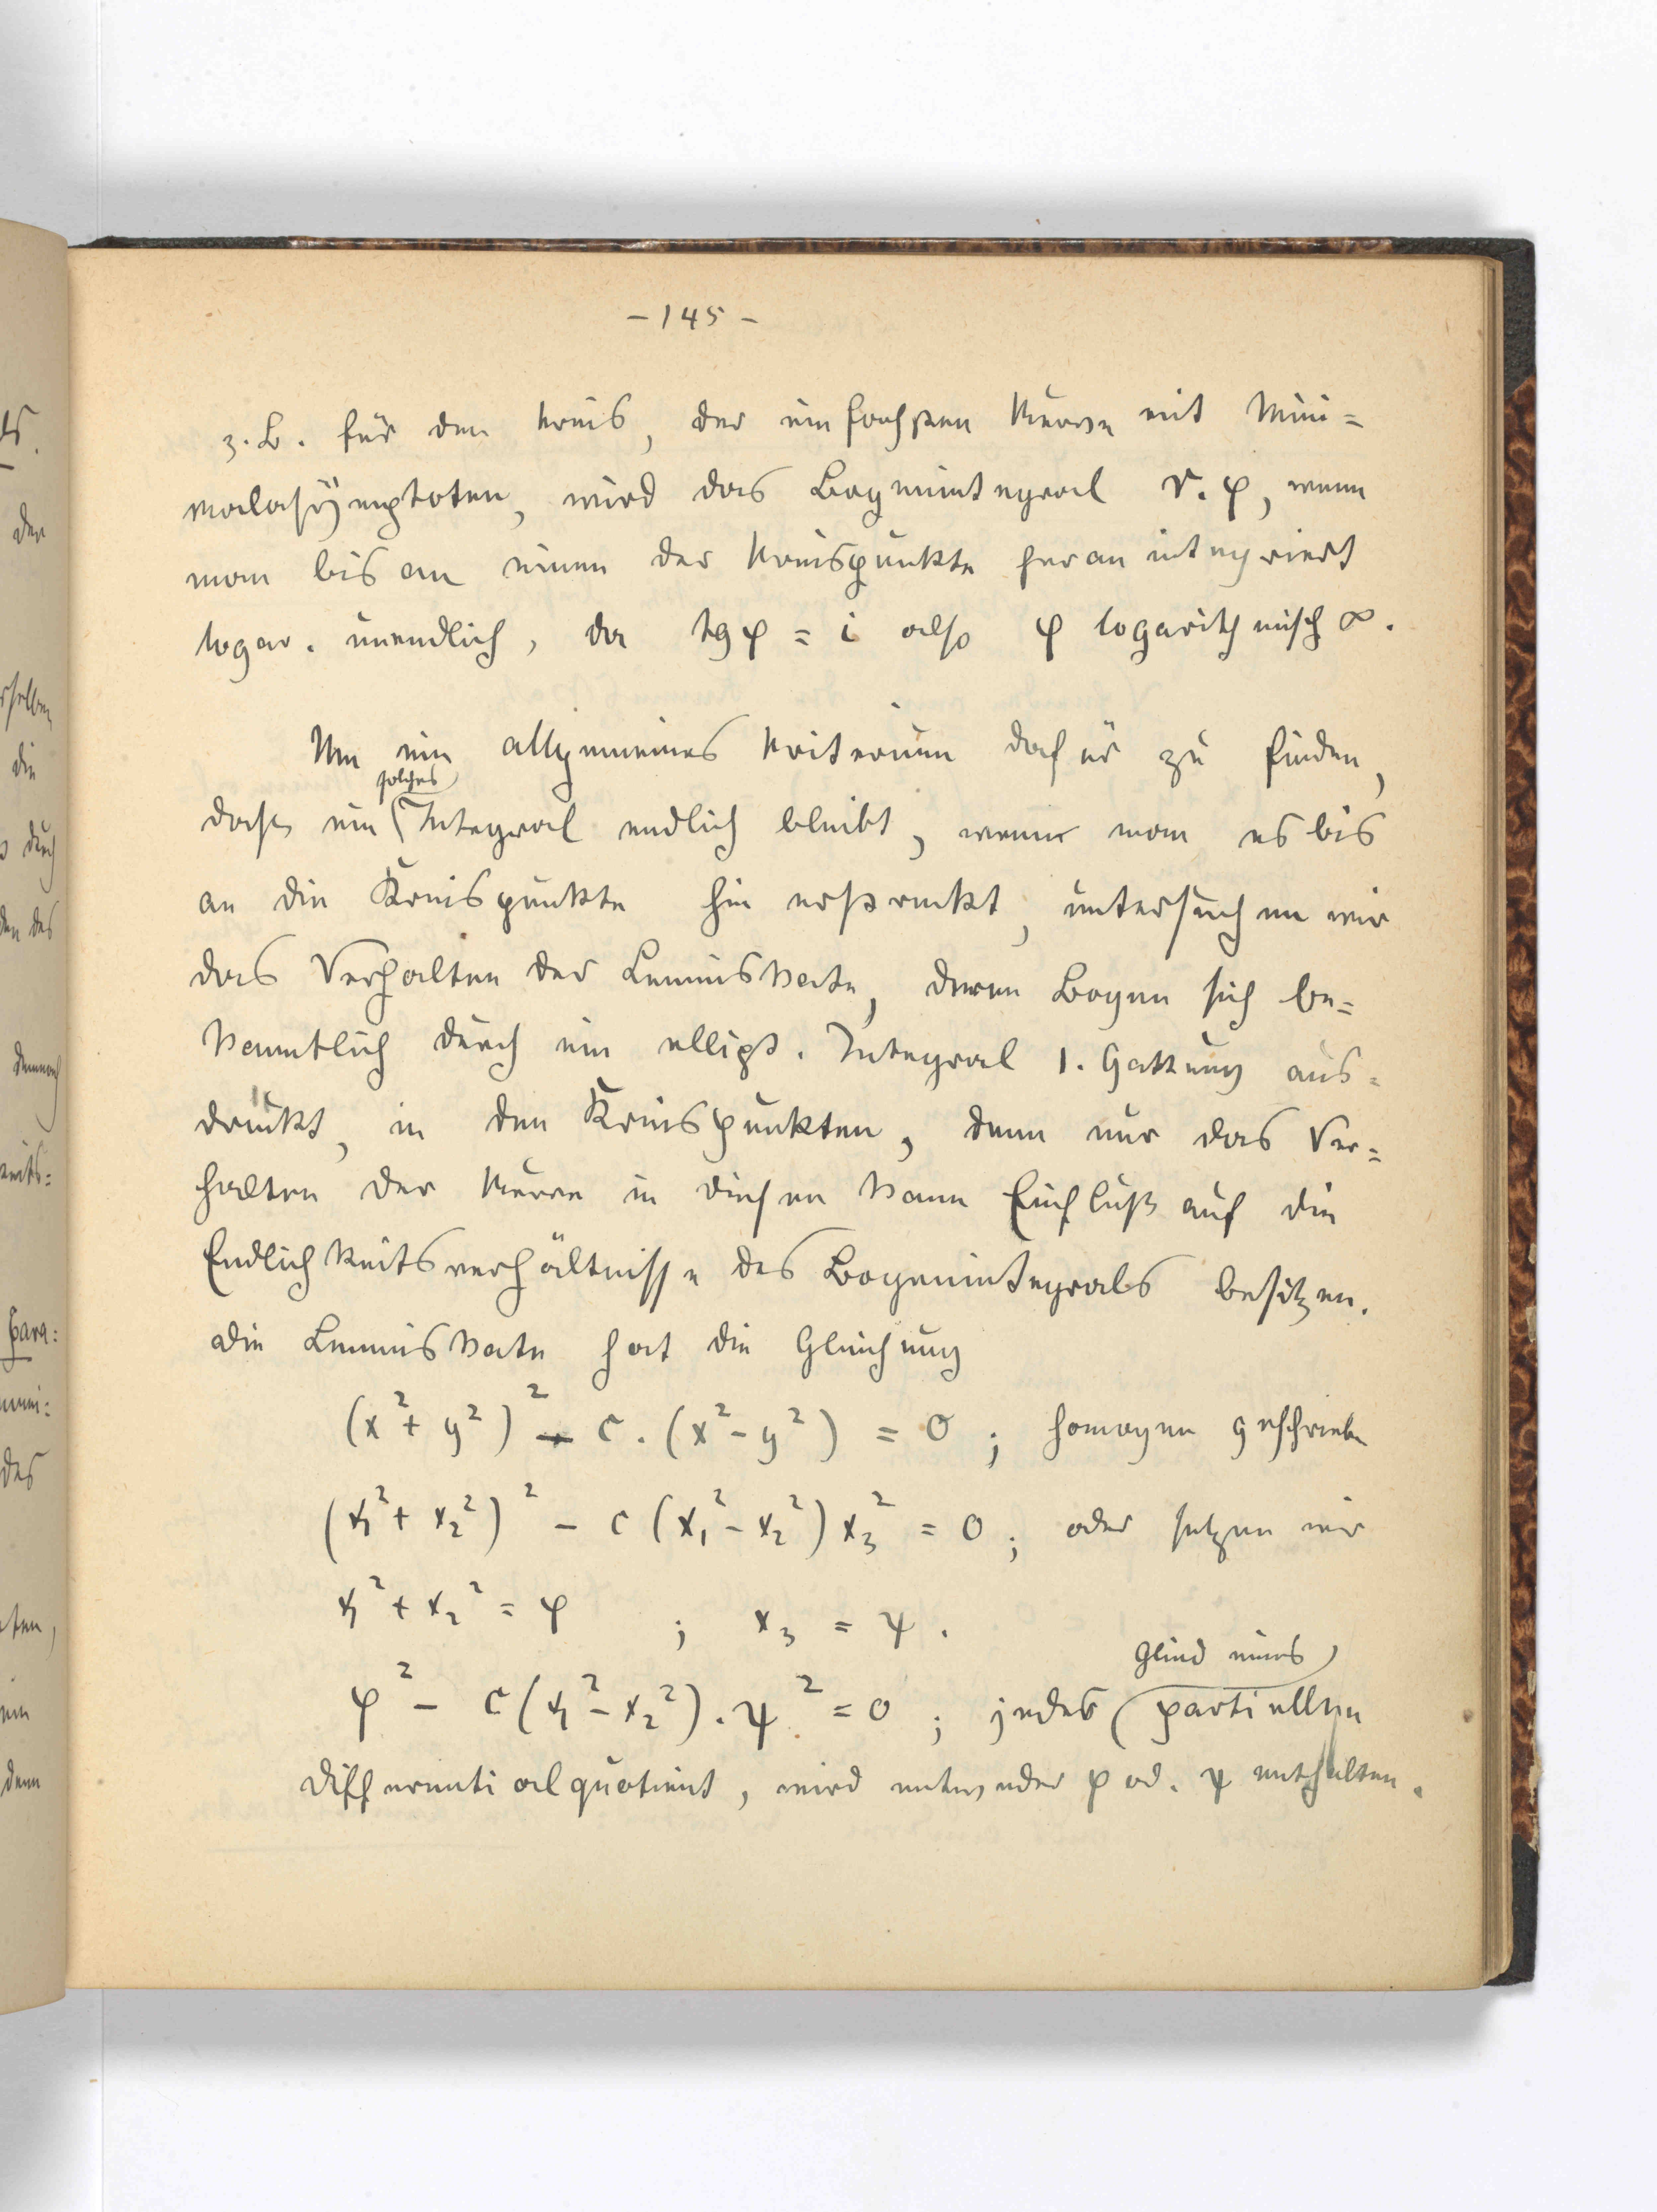 - 145 -
z. B. für den Kreis, der einfachsten Kurve mit Mini=
malasÿmptoten, wird das Bogenintegral r. φ, wenn
man bis an einen der Kreispunkte heran integriert
logar. unendlich, da tg φ = i also φ logarithmisch ∞.
Um ein allgemeines Kriterium dafür zu finden,
solches
dass ein Integral endlich bleibt, wenn man es bis
an die Kreispunkte hin erstreckt, untersuchen wir
das Verhalten der Lemniskate, deren Bogen sich be=
kanntlich durch ein ellipt. Integral 1. Gattung aus=
drückt, in den Kreispunkten, denn nur das Ver=
halten der Kurve in diesen kann Einfluß auf die
Endlichkeitsverhältnisse des Bogenintegrals besitzen.
Die Lemniskate hat die Gleichung
(x² + y²)² - c. (x² - y²) = 0 ; homogen geschrieben
(x₁² + x₂²)² - c (x₁² - x₂²) x₃² = 0 ; oder setzen wir
x₁² + x₂² = φ ; x₃ = ψ .
Glied eines
φ² - c (x₁² - x₂²) . ψ² = 0 ; jedes partiellen
Differentialquotient, wird entweder φ od. ψ enthalten.
ds.
der
die
durch
den des
demnach
Para:
des
denn